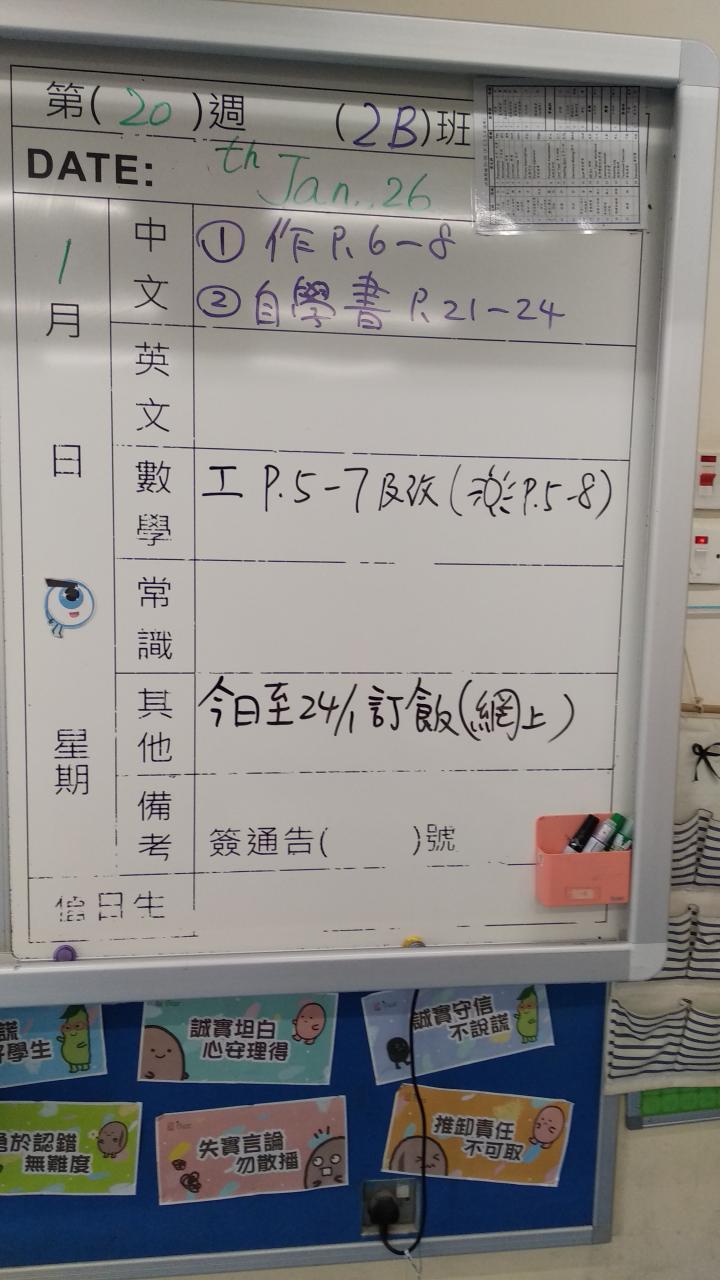 第(20)週 (2B)班
DATE: th Jan., 26
1月 日 星期
中文
① 作 P. 6-8
② 自學書 P. 21-24
英文
數學
工 P. 5-7 及改 ( P. 5-8)
常識
其他
今日至24/1訂飯(網上)
備考
簽通告( )號
值日生
誠實坦白
心安理得
誠實守信
不說謊
認錯
無難度
失實言論
勿散播
推卸責任
不可取